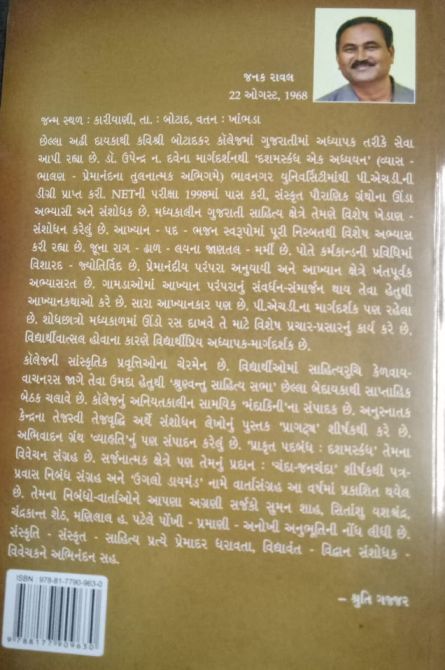 જનક રાવલ
22 ઓગસ્ટ, 1968
જન્મ સ્થળ : કારીયાણી, તા. : બોટાદ, વતન : ખાંભડા
છેલ્લા અઢી દાયકાથી કવિશ્રી બોટાદકર કૉલેજમાં ગુજરાતીમાં અધ્યાપક તરીકે સેવા
આપી રહ્યા છે. ડૉ. ઉપેન્દ્ર ન. દવેના માર્ગદર્શનથી 'દશમસ્કંધ એક અધ્યયન' (વ્યાસ -
ભાલણ - પ્રેમાનંદના તુલનાત્મક અભિગમે) ભાવનગર યુનિવર્સિટીમાંથી પી.એચ.ડી.ની
ડીગ્રી પ્રાપ્ત કરી. NETની પરીક્ષા 1998માં પાસ કરી, સંસ્કૃત પૌરાણિક ગ્રંથોના ઊંડા
અભ્યાસી અને સંશોધક છે. મધ્યકાલીન ગુજરાતી સાહિત્ય ક્ષેત્રે તેમણે વિશેષ ખેડાણ -
સંશોધન કરેલું છે. આખ્યાન - પદ - ભજન સ્વરૂપોમાં પૂરી નિસ્બતથી વિશેષ અભ્યાસ
કરી રહ્યા છે. જૂના રાગ - ઢાળ - લયના જાણતલ - મર્મી છે. પોતે કર્મકાન્ડની પ્રવિધિમાં
વિશારદ - જ્યોતિર્વિદ છે. પ્રેમાનંદીય પરંપરા અનુયાયી અને આખ્યાન ક્ષેત્રે ખંતપૂર્વક
અભ્યાસરત છે. ગામડાઓમાં આખ્યાન પરંપરાનું સંવર્ધન-સંમાર્જન થાય તેવા હેતુથી
આખ્યાનકથાઓ કરે છે. સારા આખ્યાનકાર પણ છે. પી.એચ.ડીના માર્ગદર્શક પણ રહેલા
છે. શોધછાત્રો મધ્યકાળમાં ઊંડો રસ દાખવે તે માટે વિશેષ પ્રચાર-પ્રસારનું કાર્ય કરે છે.
વિદ્યાર્થીવાત્સલ હોવાના કારણે વિદ્યાર્થીપ્રિય અધ્યાપક-માર્ગદર્શક છે.
કૉલેજની સાંસ્કૃતિક પ્રવૃત્તિઓના ચેરમેન છે. વિદ્યાર્થીઓમાં સાહિત્યરુચિ કેળવાય-
વાચનરસ જાગે તેવા ઉમદા હેતુથી 'શ્રુણ્વન્તુ સાહિત્ય સભા' છેલ્લા બેદાયકાથી સાપ્તાહિક
બેઠક ચલાવે છે. કૉલેજનું અનિયતકાલીન સામયિક 'મંદાકિની'ના સંપાદક છે. અનુસ્નાતક
કેન્દ્રના તેજસ્વી તેજવૃદ્ધિ અર્થે સંશોધન લેખોનું પુસ્તક 'પ્રાગટ્ય' શીર્ષકથી કરે છે.
અભિવાદન ગ્રંથ 'વ્યાહૃતિ'નું પણ સંપાદન કરેલું છે. 'પ્રાકૃત પદબંધ : દશમસ્કંધ' તેમના
વિવેચન સંગ્રહ છે. સર્જનાત્મક ક્ષેત્રે પણ તેમનું પ્રદાન : 'ચંદા-જનચંદા' શીર્ષકથી પત્ર-
પ્રવાસ નિબંધ સંગ્રહ અને 'ઉગલો ડાયમંડ' નામે વાર્તાસંગ્રહ આ વર્ષમાં પ્રકાશિત થયેલ
છે. તેમના નિબંધો-વાર્તાઓને આપણા અગ્રણી સર્જકો સુમન શાહ, સિતાંશુ યશશ્ચંદ્ર,
ચંદ્રકાન્ત શેઠ, મણિલાલ હ. પટેલે પોંખી - પ્રમાણી - અનોખી અનુભૂતિની નોંધ લીધી છે.
સંસ્કૃતિ - સંસ્કૃત - સાહિત્ય પ્રત્યે પ્રેમાદર ધરાવતા, વિદ્યાવંત - વિદ્વાન સંશોધક -
વિવેચકને અભિનંદન સહ.
– શ્રુતિ ગજ્જર
ISBN : 978-81-7790-963-0
9788177909630